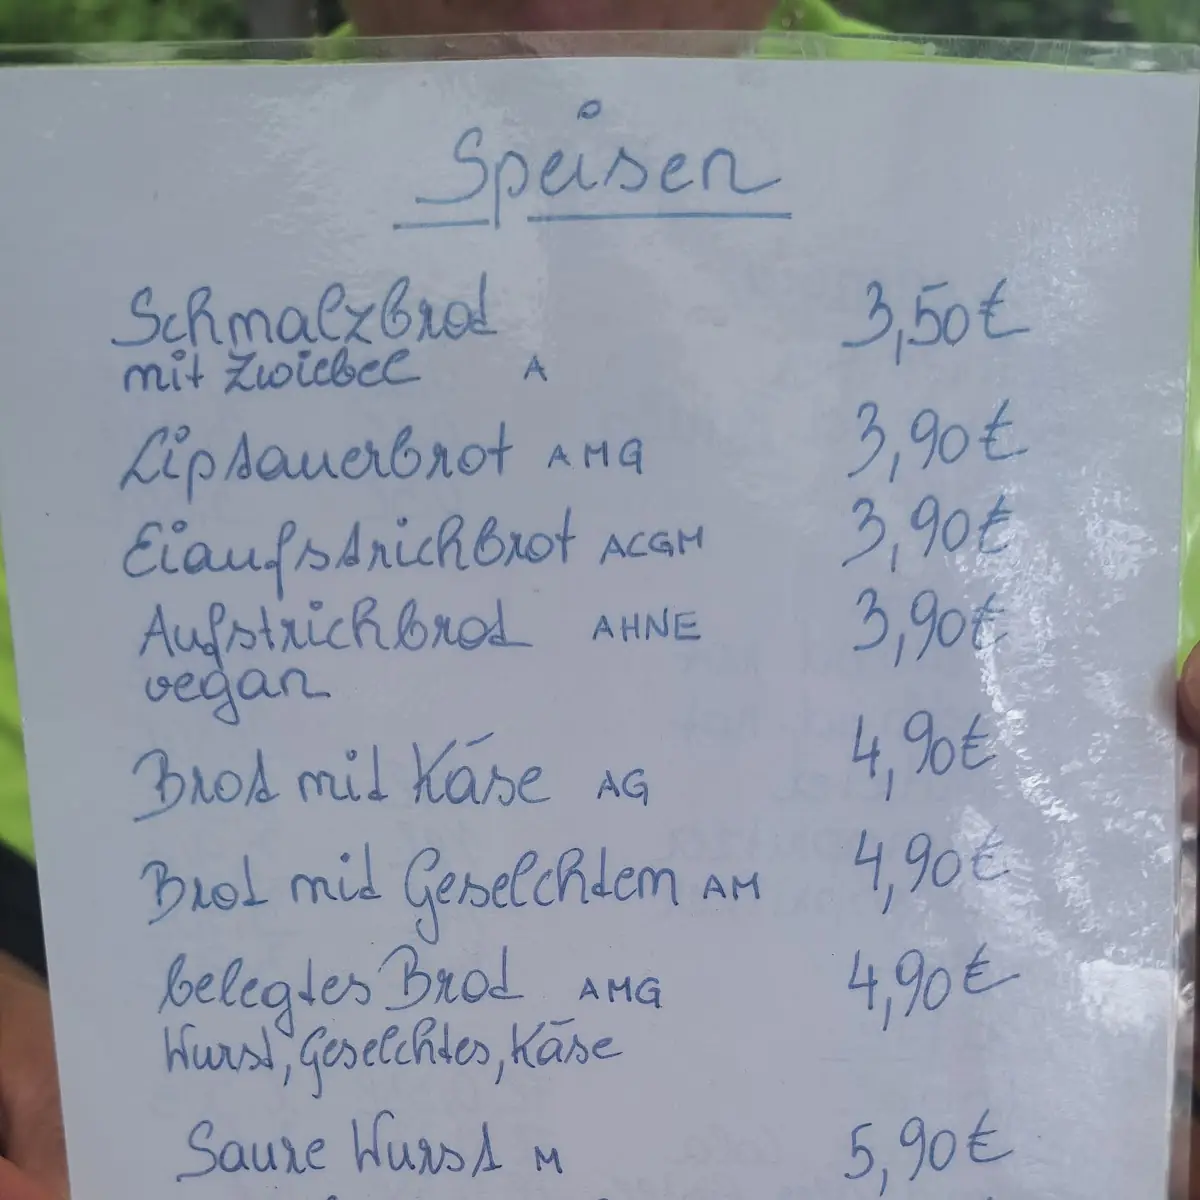 Speisen
Schmalzbrot 3,50€
mit Zwiebel A
Lipsauerbrot AMG 3,90€
Eiaufstrichbrot ACGM 3,90€
Aufstrichbrot AHNE 3,90€
vegan
Brot mit Käse AG 4,90€
Brot mit Geselchtem AM 4,90€
belegtes Brot AMG 4,90€
Wurst, Geselchtes, Käse
Saure Wurst M 5,90€